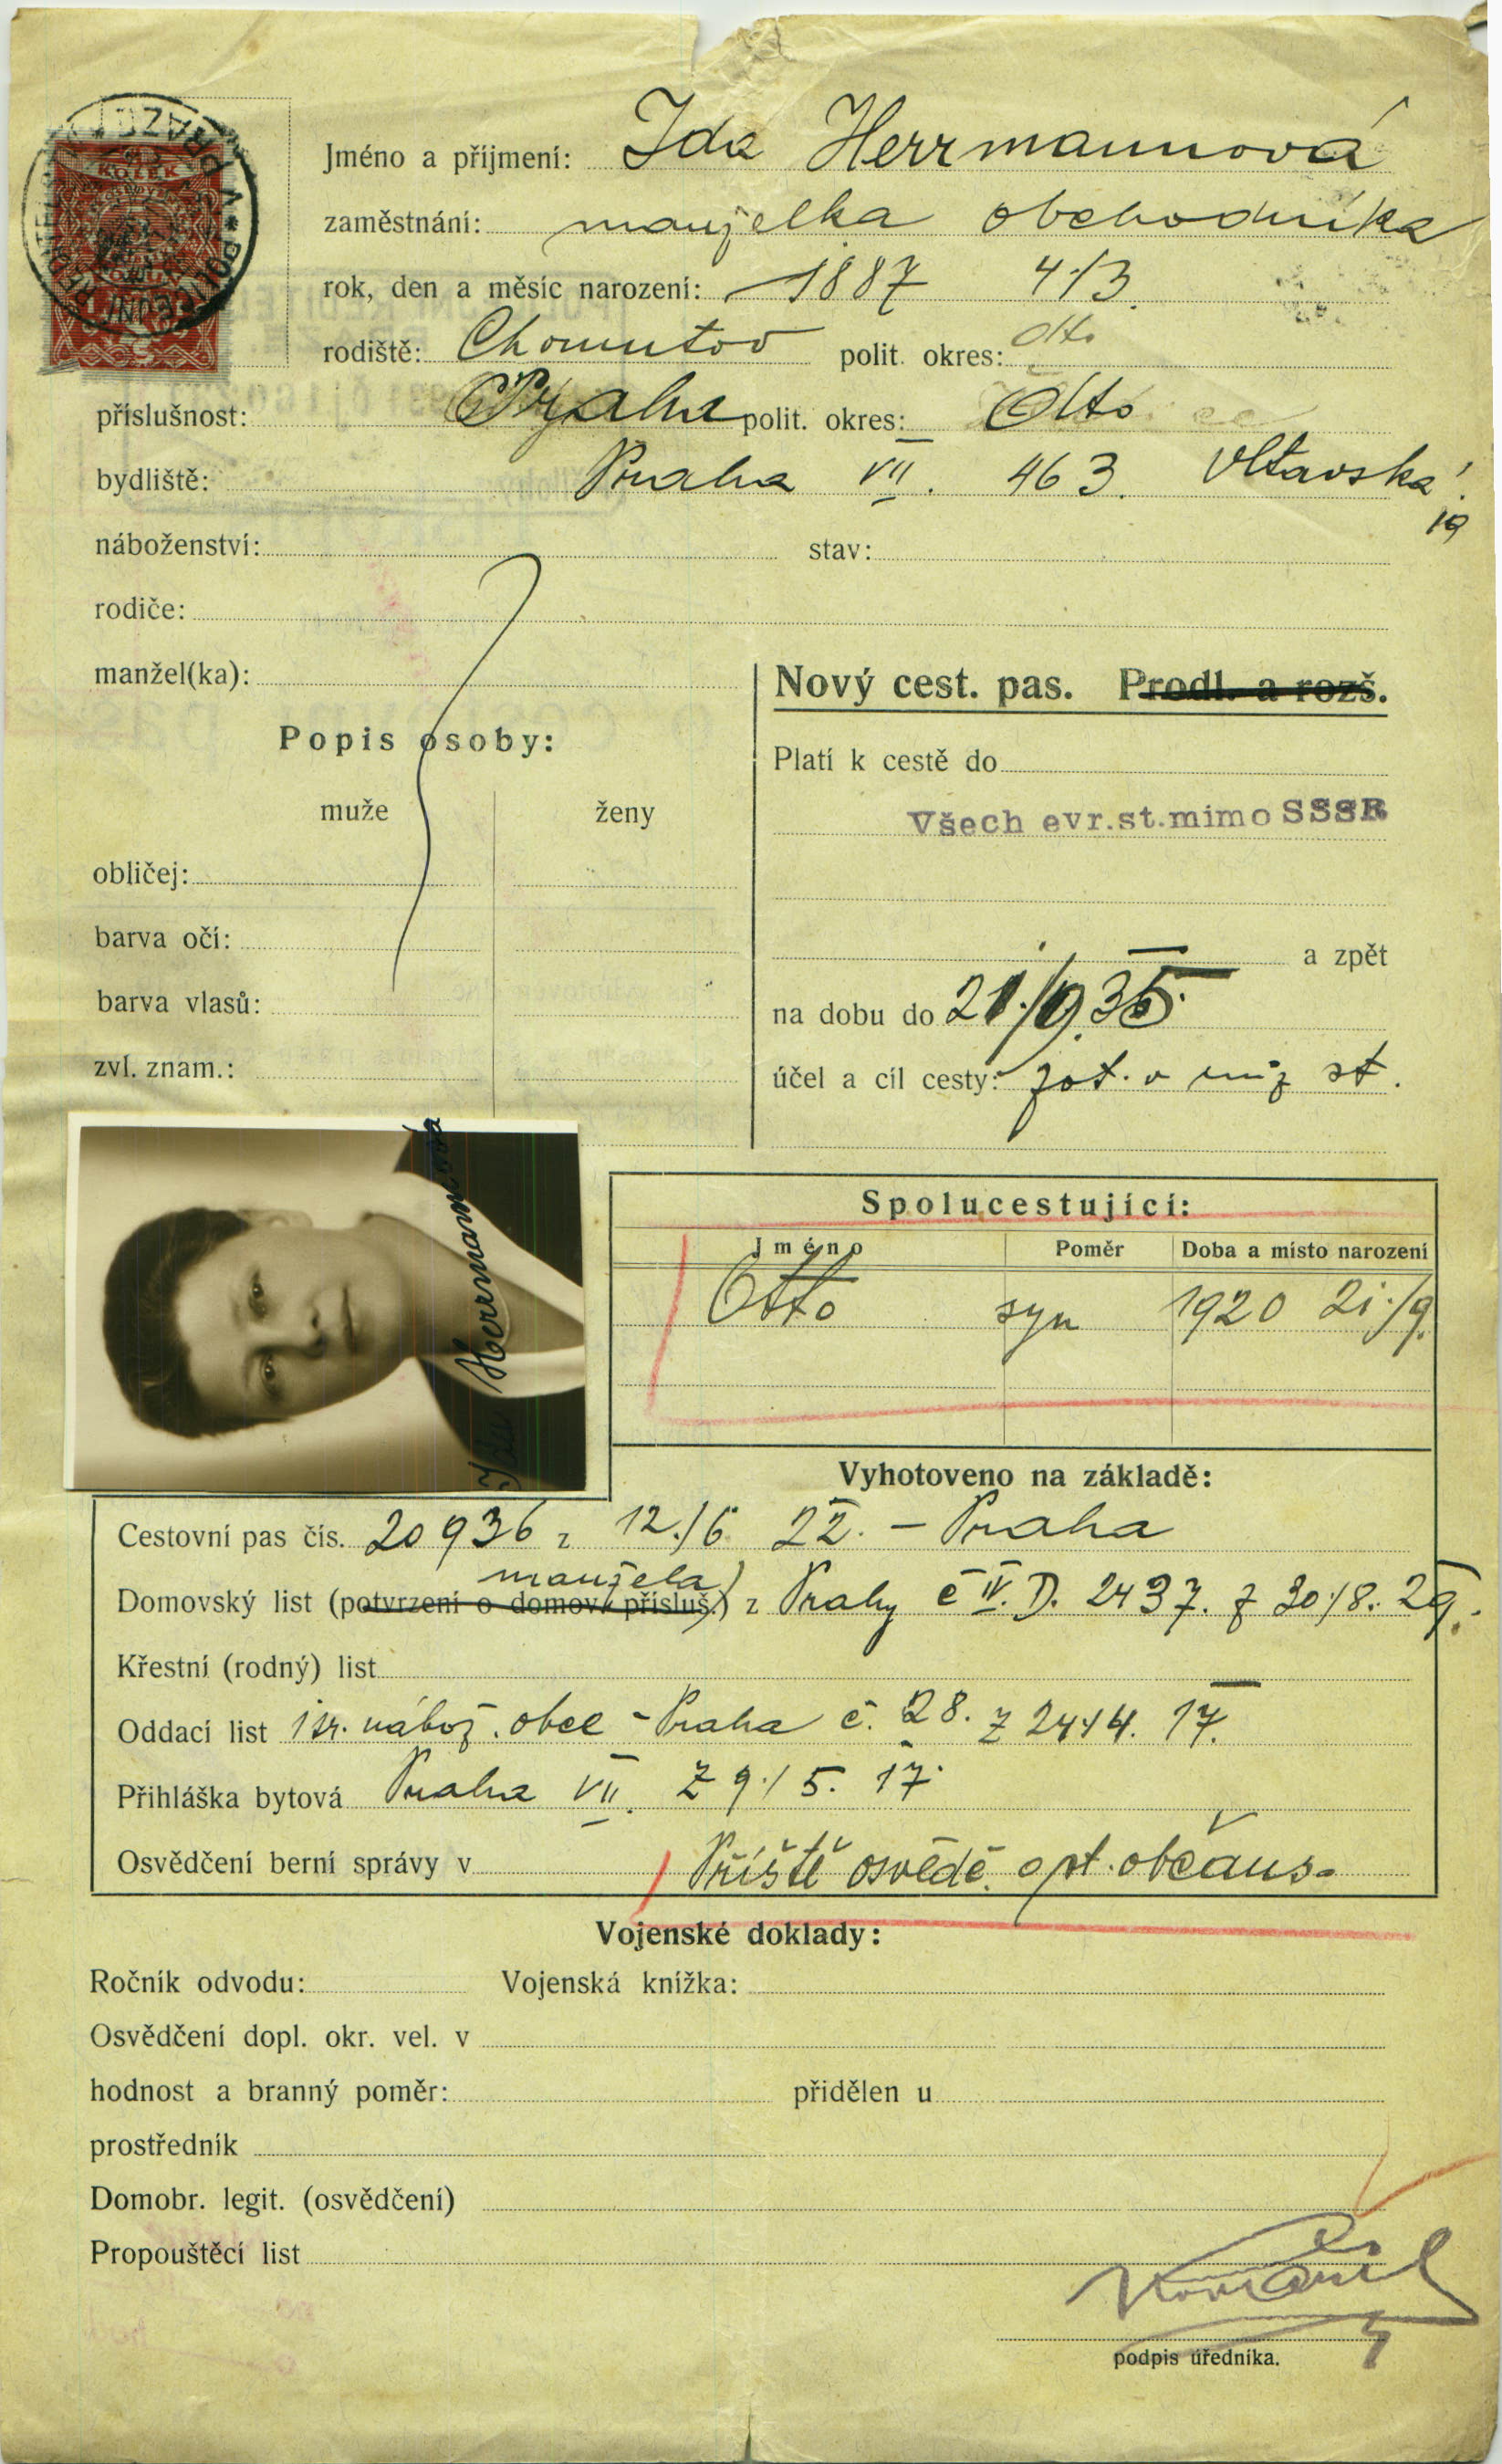 KOLEK
Jméno a příjmení: Ida Herrmannová
zaměstnání: manželka obchodníka
rok, den a měsíc narození: 1887 4/3.
rodiště: Chomutov polit. okres: dto
příslušnost: Praha polit. okres: dto
bydliště: Praha VII. 463. Vltavská
19
náboženství: stav:
rodiče:
manžel(ka):
Nový cest. pas. Prodl. a rozš.
Popis osoby:
Platí k cestě do
muže ženy
Všech evr.st.mimo SSSR
obličej:
barva očí:
a zpět
barva vlasů:
na dobu do 21./9.35
zvl. znam.:
účel a cíl cesty: jot. v niž st.
Ida Herrmannová
Spolucestující:
Jméno Poměr Doba a místo narození
Otto syn 1920 21./9.
Vyhotoveno na základě:
Cestovní pas čís. 20936 z 12./6 22. – Praha
manžela
Domovský list (potvrzení o domov. přísluš.) z Prahy č IV. D. 2437. z 30/8. 29.
Křestní (rodný) list
Oddací list isr. nábož. obce - Praha č. 28. z 24/4. 17.
Přihláška bytová Praha VII. z 9./5. 17.
Osvědčení berní správy v Příště osvědč. o st. občans.
Vojenské doklady:
Ročník odvodu: Vojenská knížka:
Osvědčení dopl. okr. vel. v
hodnost a branný poměr: přidělen u
prostředník
Domobr. legit. (osvědčení)
Propouštěcí list
podpis úředníka.